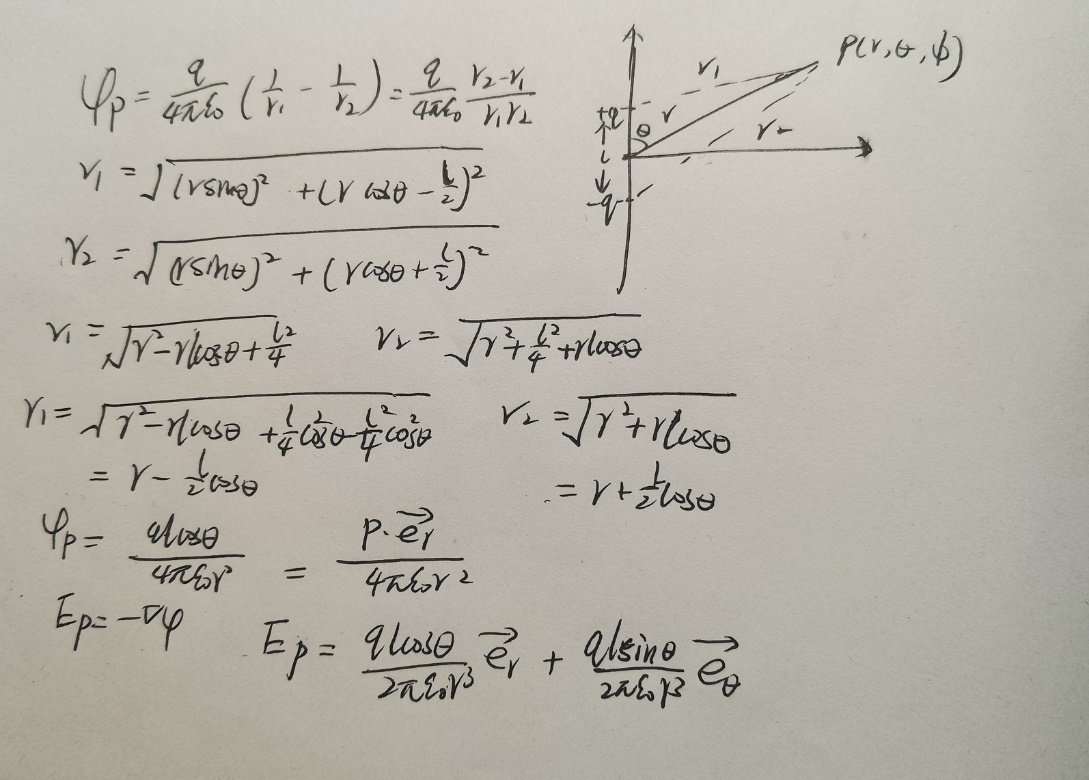 φ_p = q/(4πε₀) (1/r₁ - 1/r₂) = q/(4πε₀) (r₂-r₁)/(r₁r₂)
r₁ = √((rsinθ)² + (r cosθ - l/2)²)
r₂ = √((rsinθ)² + (rcosθ + l/2)²)
r₁ = √(r² - rlcosθ + l²/4) r₂ = √(r² + l²/4 + rlcosθ)
r₁ = √(r² - rlcosθ + l/4 cos²θ - l²/4 cos²θ) r₂ = √(r² + rlcosθ)
= r - l/2 cosθ = r + l/2 cosθ
φ_p = qlcosθ/(4πε₀r²) = p·e⃗_r/(4πε₀r²)
E_p = -∇φ E_p = qlcosθ/(2πε₀r³) e⃗_r + qlsinθ/(2πε₀r³) e⃗_θ
P(r,θ,φ)
r₁
+q
r
θ
r₂
l
-q